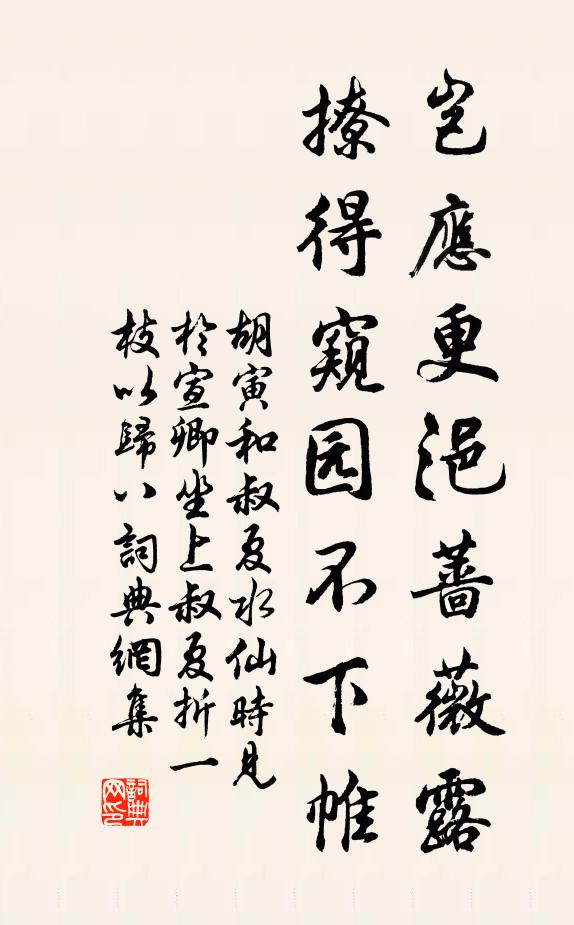 豈應更浥薔薇露
撩得窺园不下帷
胡寅和叔夏水仙時見
於宣卿坐上叔夏折一
枝以歸八詞典網集
詞典网印